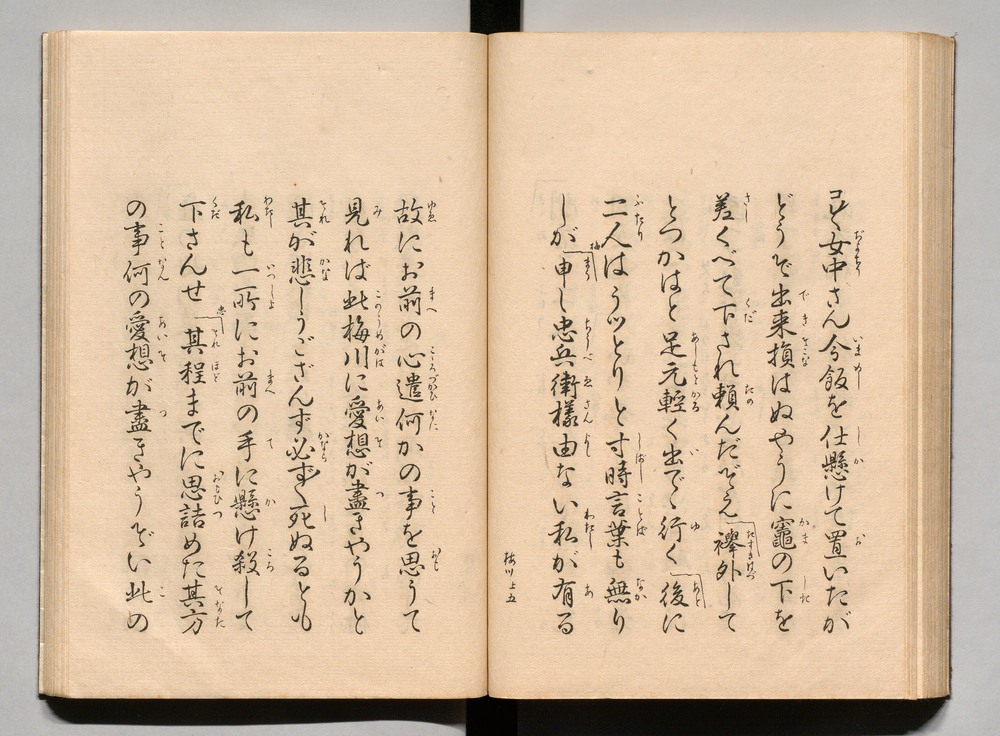 コレ女中さん今飯を仕懸けて置いたが
どうぞ出来損はぬやうに竈の下を
差くべて下され頼んだぞえ 襷外して
とつかはと足元軽く出でゝ行く 後に
二人はうツとりと寸時言葉も無り
しが 申し忠兵衛様由ない私が有る
梅川上五
故にお前の心遣何かの事を思うて
見れば此梅川に愛想が盡きやうかと
其が悲しうござんす必ず〱死ぬるとも
私も一所にお前の手に懸け殺して
下さんせ 其程までに思詰めた其方
の事何の愛想が盡きやうぞい此の